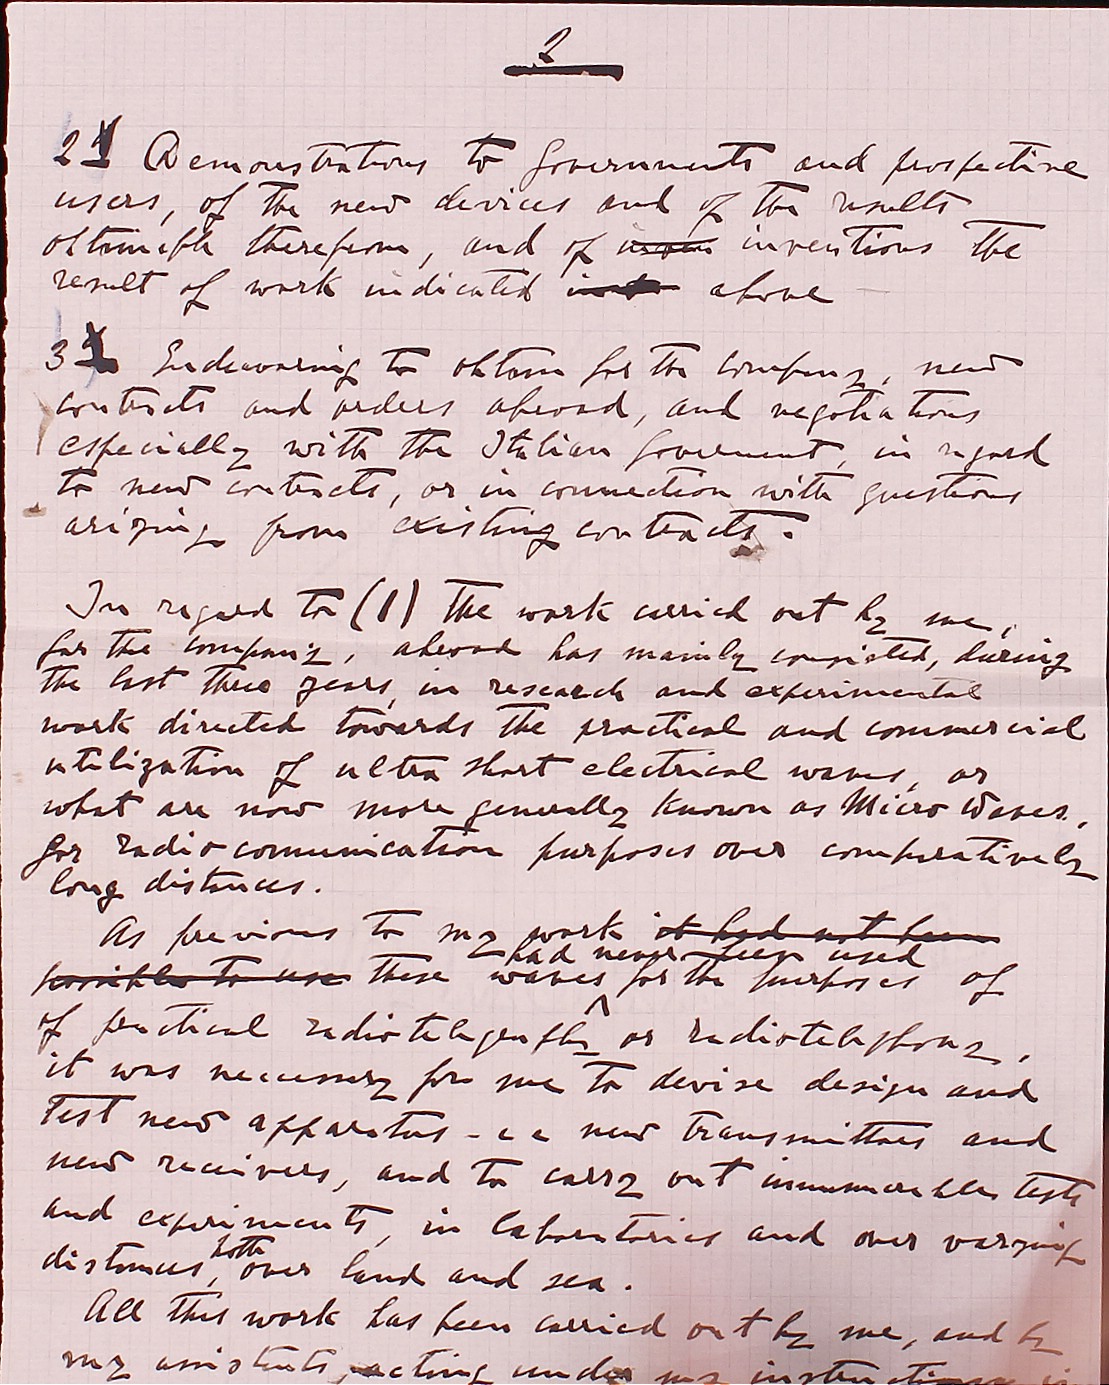 2
2 Demonstrations to Governments and prospective
users, of the new devices and of the results
obtainable therefrom, and of inven inventions the
result of work indicated above
3 Endeavoring to obtain for the company, new
contracts and orders abroad, and negotiations
especially with the Italian Government, in regard
to new contracts, or in connection with questions
arizing from existing contracts.
In regard to (1) the work carried out by me,
for the company, abroad has mainly consisted, during
the last three years, in research and experimental
work directed towards the practical and commercial
utilization of ultra short electrical waves, or
what are now more generally known as Micro Waves,
for radio communication purposes over comparatively
long distances.
As previous to my work it had not been
had never been used
possible to use these waves for the purposes of
of practical radiotelegraphy or radiotelephony,
it was necessary for me to devise design and
test new apparatus - i e new transmitters and
new receivers, and to carry out innumerable tests
and experiments, in laboratories and over varying
both
distances, over land and sea.
All this work has been carried out by me, and by
my assistants, acting under my instructions in